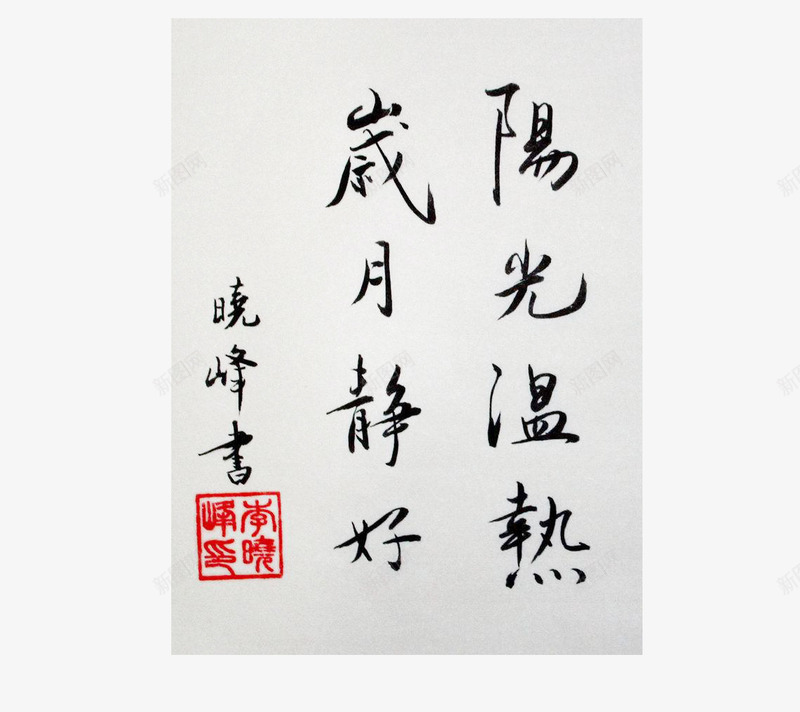 陽光温熱
歲月静好
曉峰書
李曉峰印
新图网